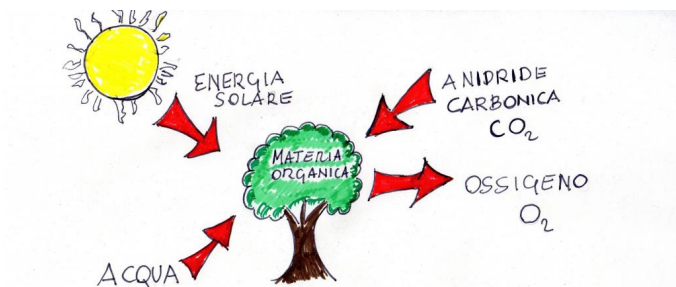 ENERGIA
SOLARE
ANIDRIDE
CARBONICA
CO₂
MATERIA
ORGANICA
OSSIGENO
O₂
ACQUA